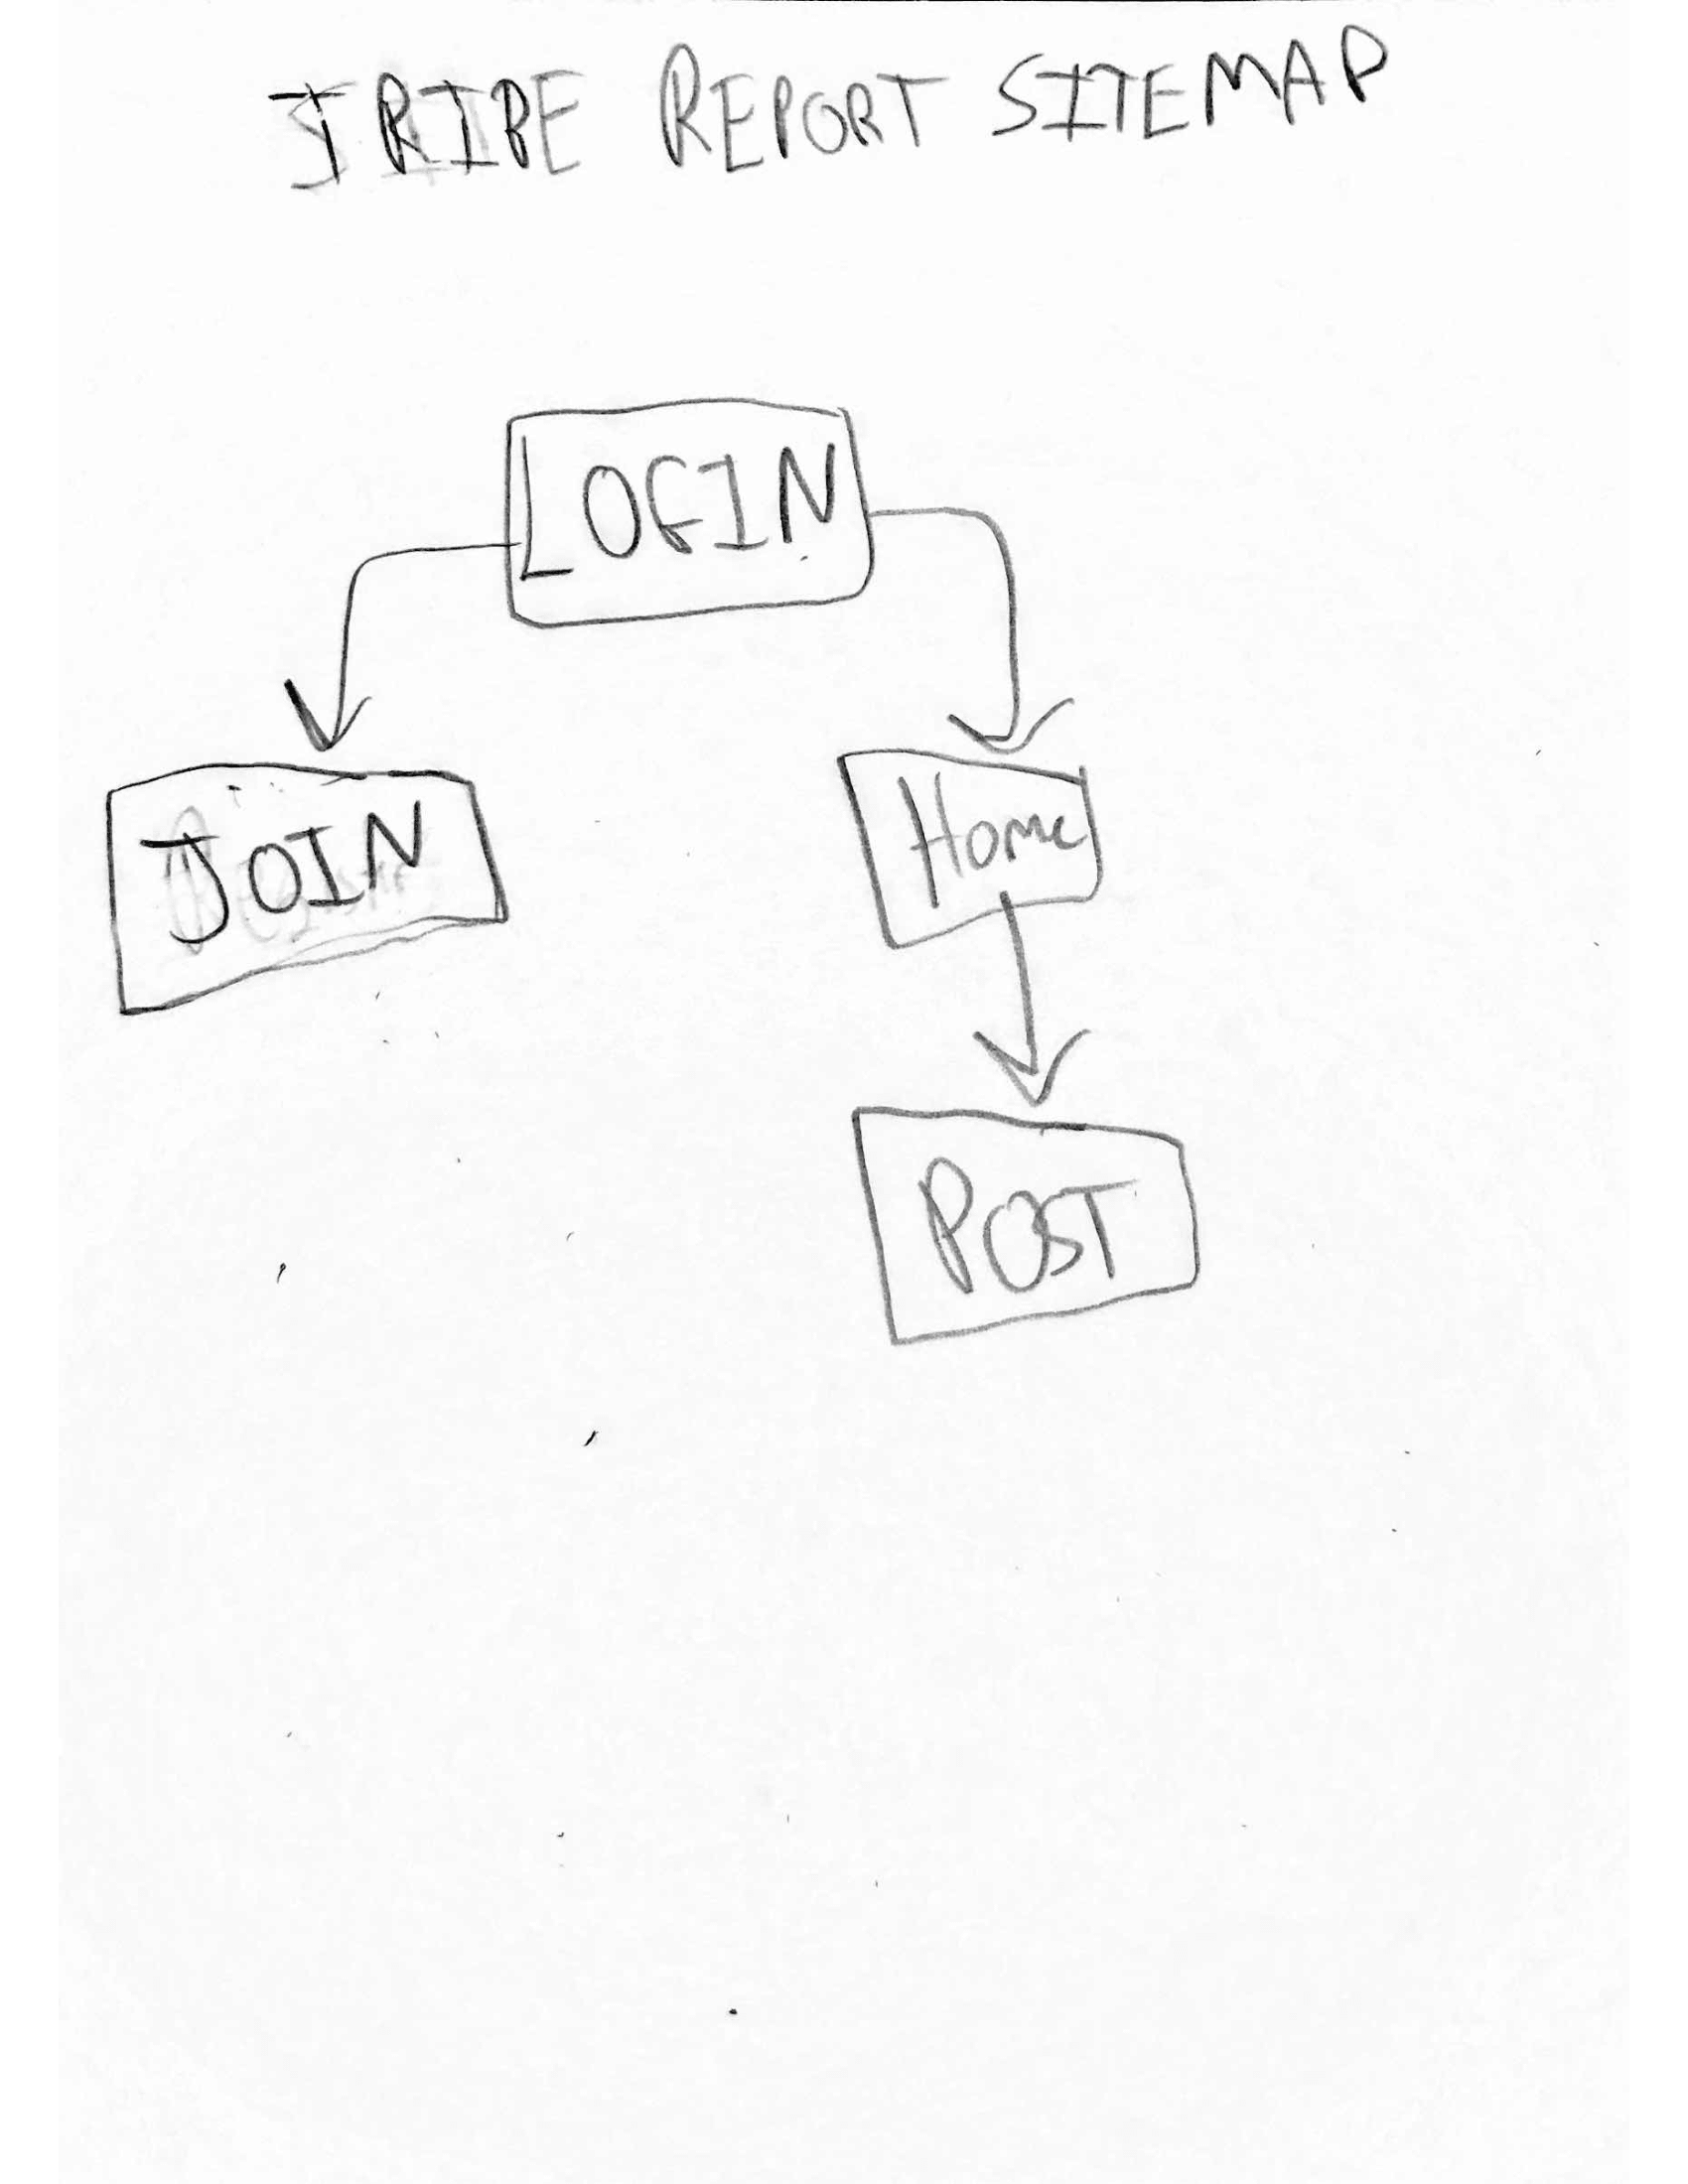 TRIBE REPORT SITEMAP
LOGIN
JOIN
Home
POST